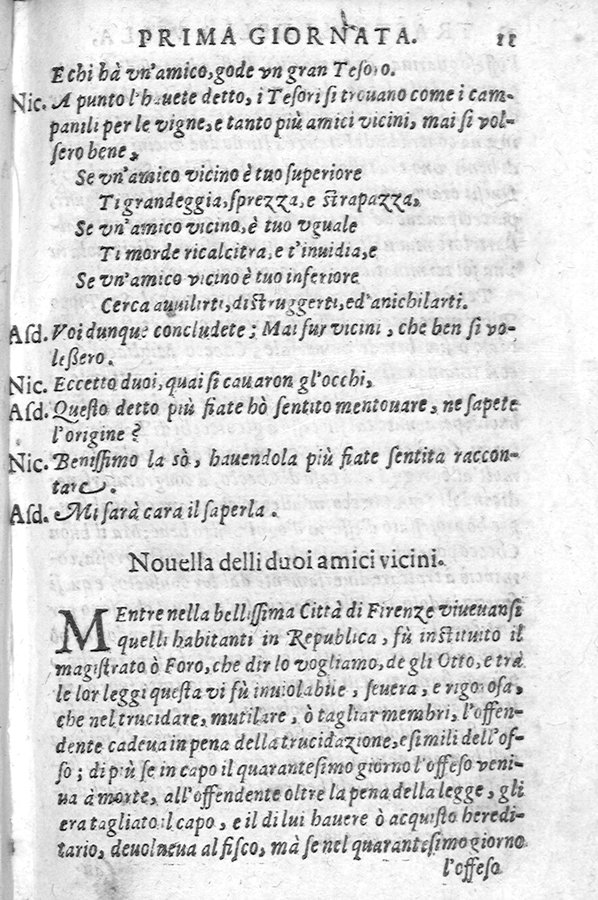 PRIMA GIORNATA. 11
E chi hà vn'amico, gode vn gran Tesoro.
Nic. A punto l'hauete detto, i Tesori si trouano come i cam-
panili per le vigne, e tanto più amici vicini, mai si vol-
sero bene,
Se vn'amico vicino è tuo superiore
Ti grandeggia, sprezza, e strapazza,
Se vn'amico vicino, è tuo vguale
Ti morde ricalcitra, e t'inuidia, e
Se vn'amico vicino è tuo inferiore
Cerca auilirti, distruggerti, ed'anichilarti.
Asd. Voi dunque concludete; Mai fur vicini, che ben si vo-
leßero.
Nic. Eccetto duoi, quai si cauaron gl'occhi,
Asd. Questo detto più fiate hò sentito mentouare, ne sapete
l'origine?
Nic. Benissimo la sò, hauendola più fiate sentita raccon-
tare.
Asd. Mi sarà cara il saperla.
Nouella delli duoi amici vicini.
MEntre nella bellissima Città di Firenze viueuansi
quelli habitanti in Republica, fù instituito il
magistrato ò Foro, che dir lo vogliamo, de gli Otto, e trà
le lor leggi questa vi fù inuiolabile, seuera, e rigorosa,
che nel trucidare, mutilare, ò tagliar membri, l'offen-
dente cadeua in pena della trucidazione, e simili dell'of-
so; di più se in capo il quarantesimo giorno l'offeso veni-
ua à morte, all'offendente oltre la pena della legge, gli
era tagliato il capo, e il di lui hauere ò acquisto heredi-
tario, deuolueua al fisco, mà se nel quarantesimo giorno
l'offeso